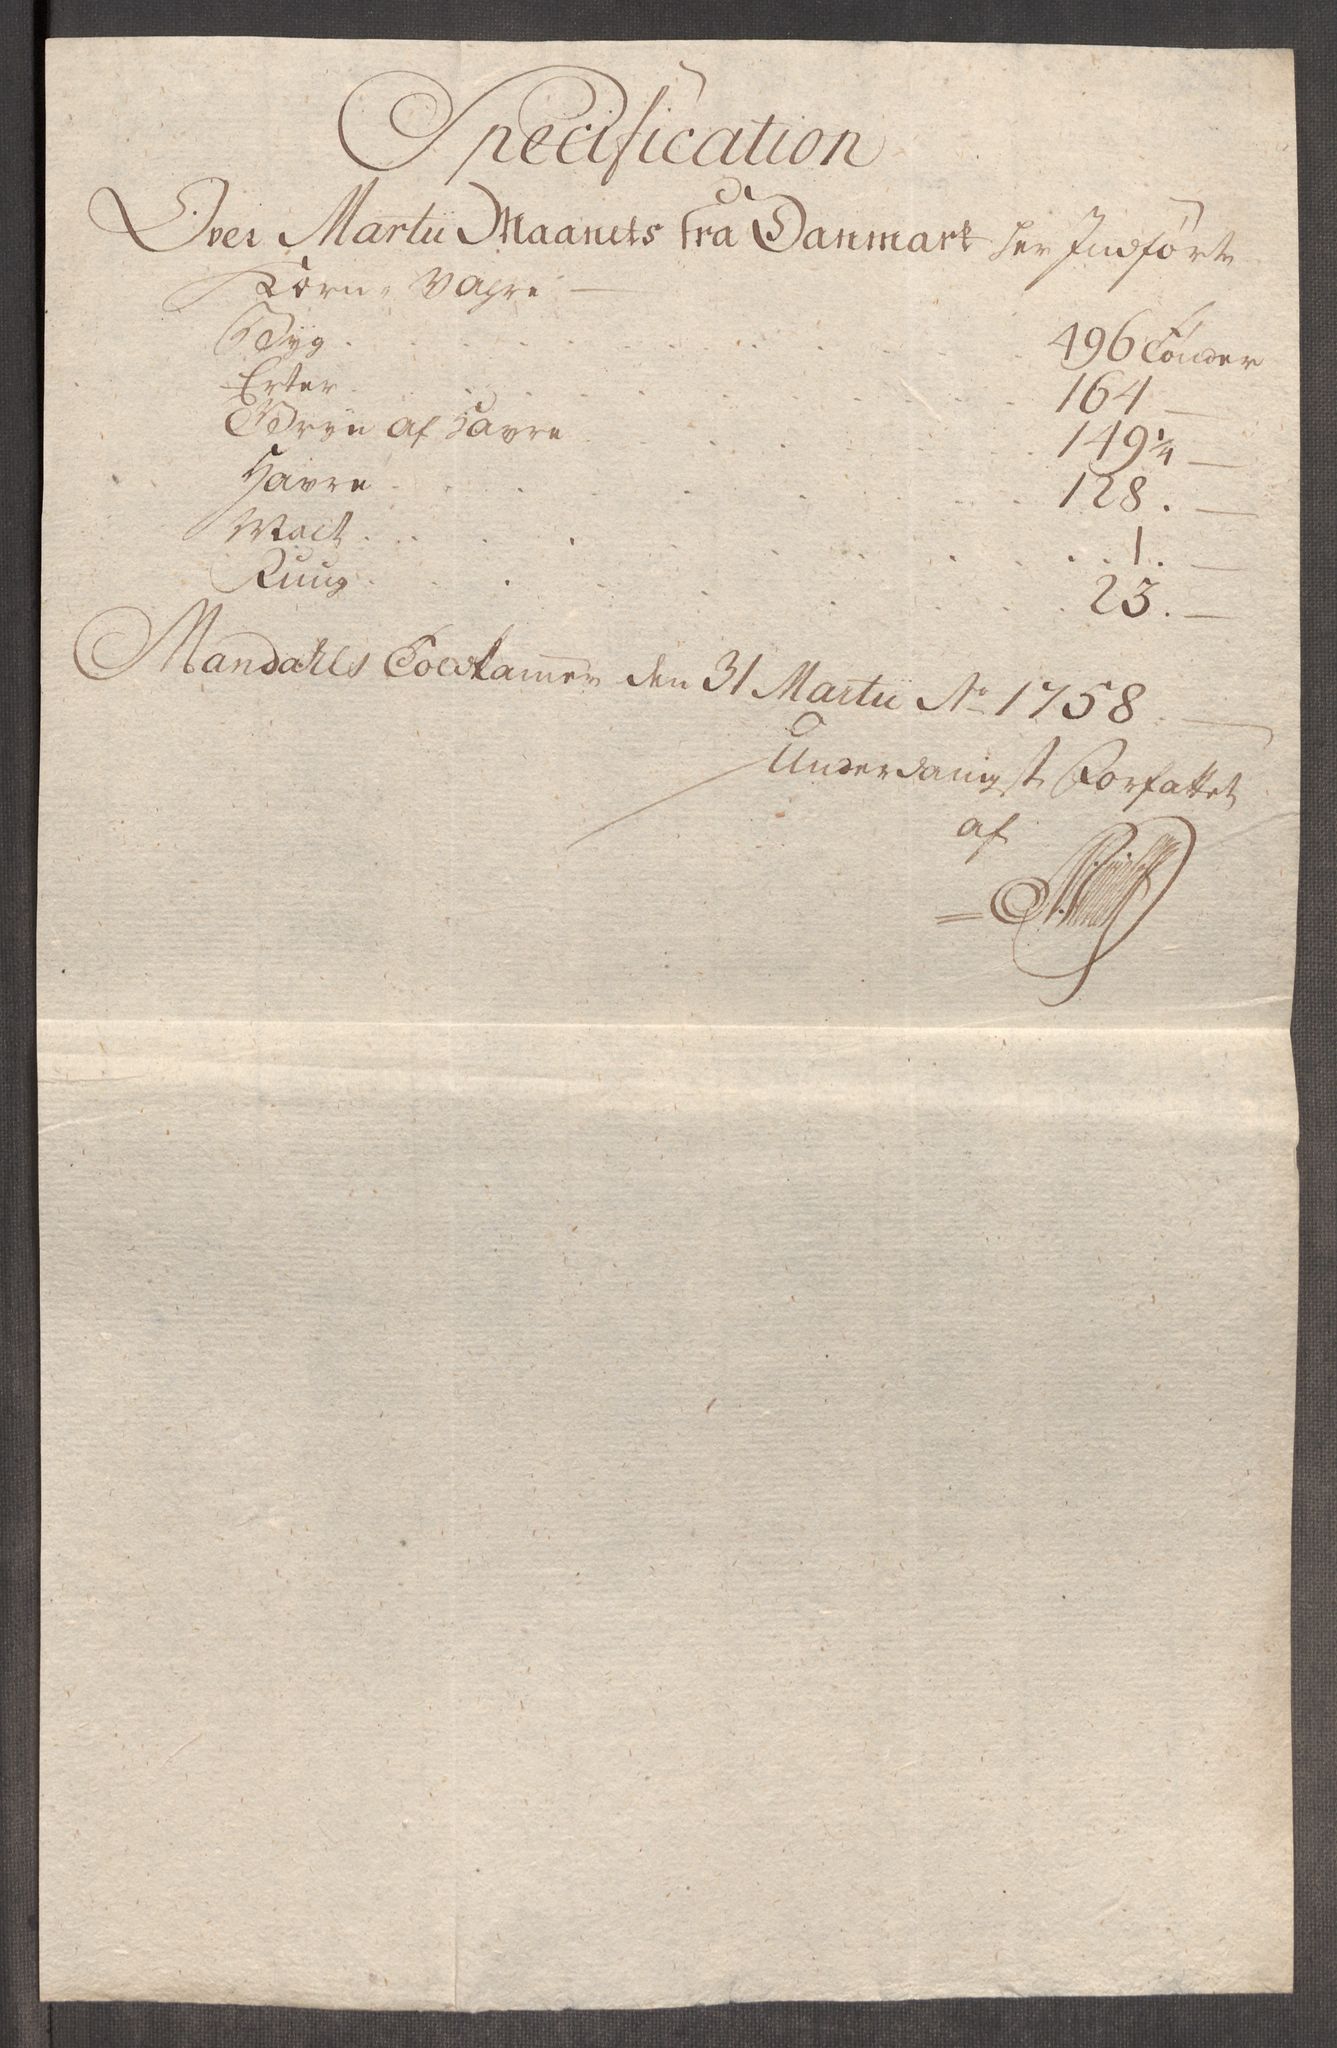 Specification
Over Martii Maanets fra Danmark her Indførte
Korn-Vahre —
Byg . . . 496 Tønder
Erter . . . 164 —
Gryn af Havre . . . 149 1/4 —
Havre . . . 128 . —
Malt . . . 1 . —
Ruug . . . 23 . —
Mandahls Toldkamer den 31 Martii Ao 1758 . —
Underdanigst Forfattet
af